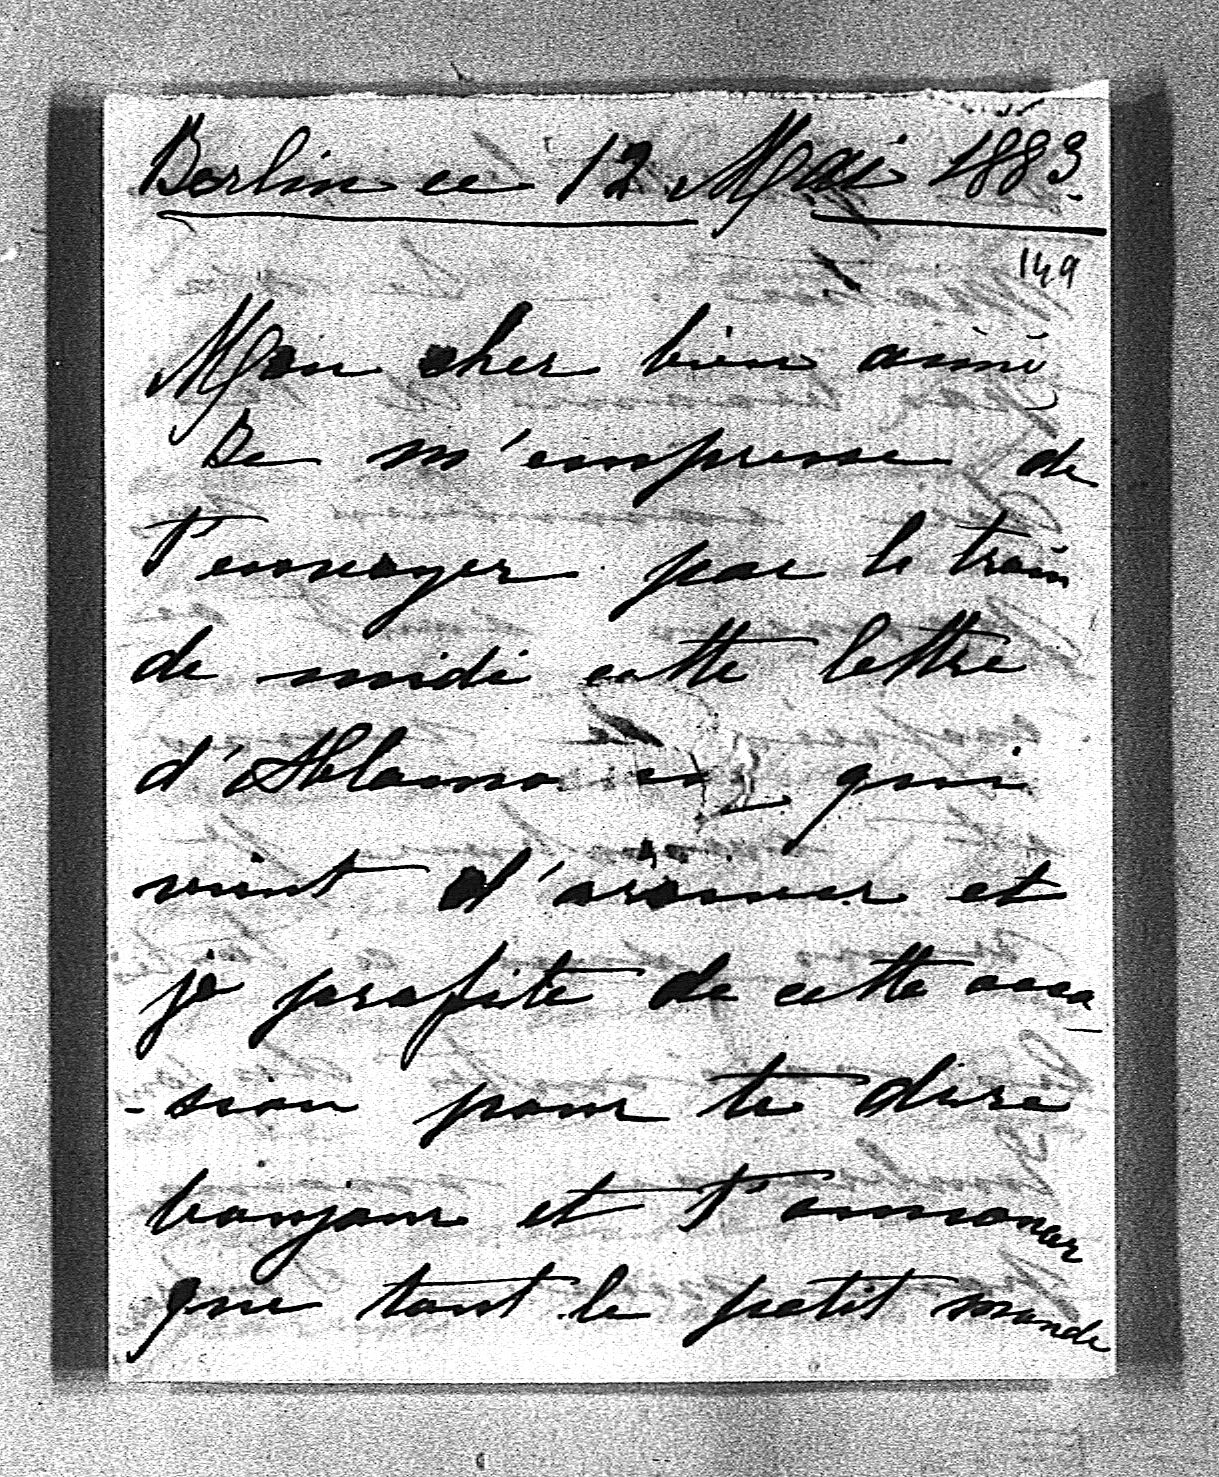 Berlin ce 12 Mai 1883.
149
Mon cher bien aimé
Je m'empresse de
t'envoyer par le train
de midi cette lettre
qui
vient d'arriver et
je profite de cette occa
-sion pour te dire
bonjour et t'annoncer
que tout le petit monde